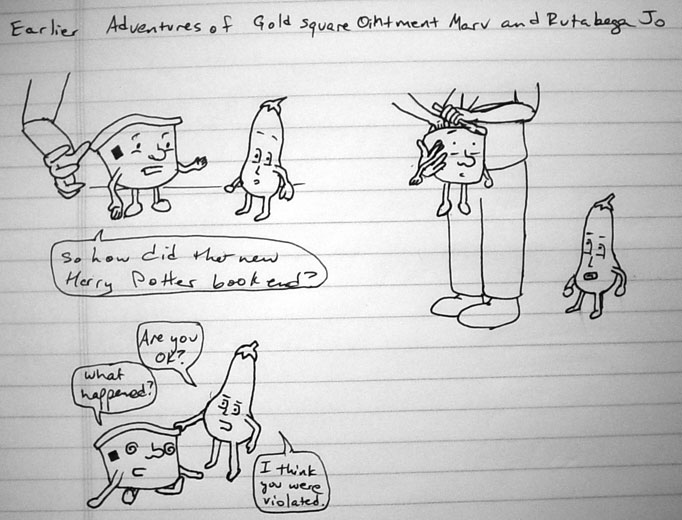 Earlier Adventures of Gold square Ointment Marv and Rutabega Jo
So how did ther new
Harry Potter book end?
Are you
OK?
What
happened?
I think
you were
violated.